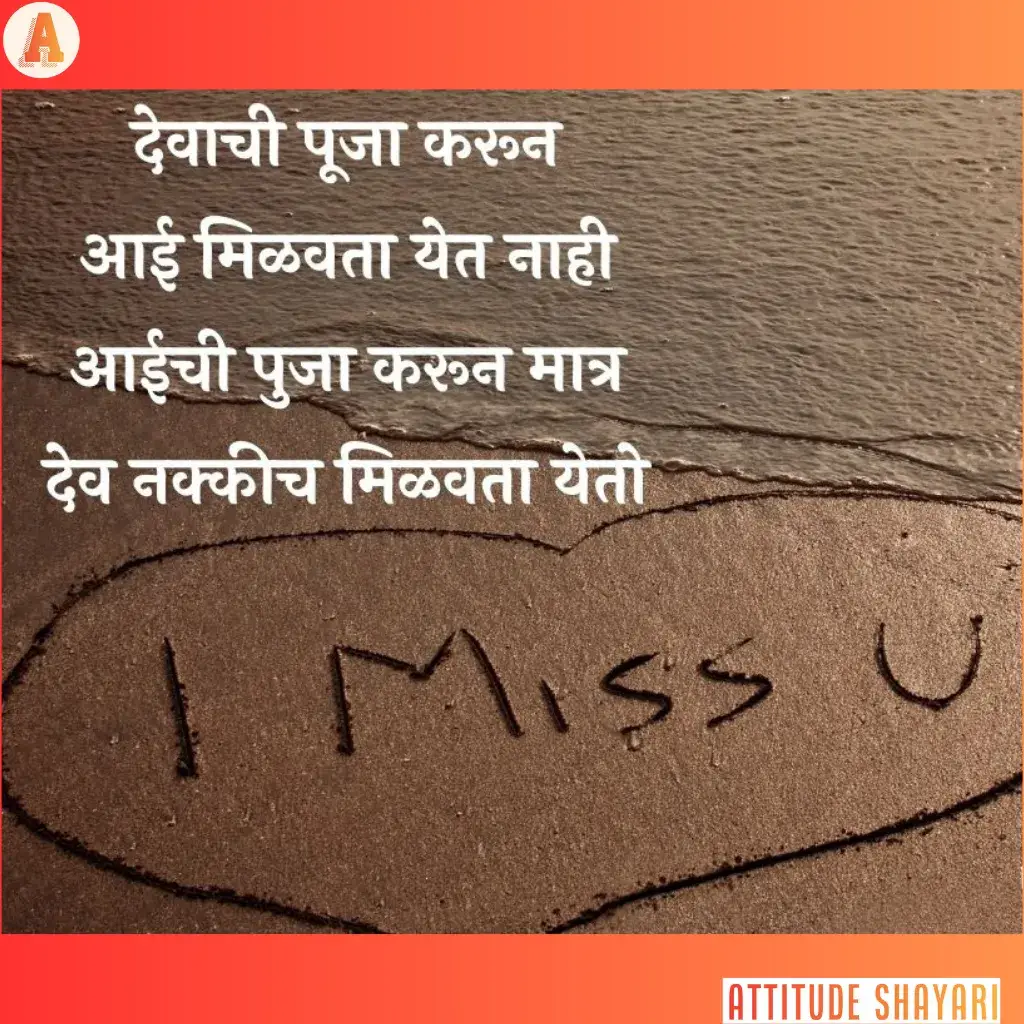 A
देवाची पूजा करून
आई मिळवता येत नाही
आईची पुजा करून मात्र
देव नक्कीच मिळवता येतो
I Miss U
ATTITUDE SHAYARI